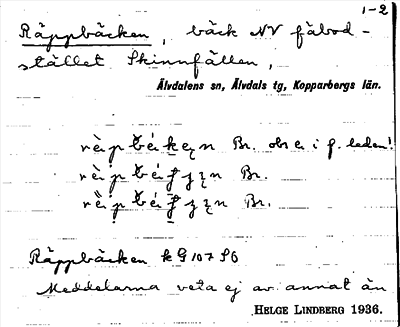 1-2
Räppbäcken, bäck NV fäbod-
stället Skinnfällen,
Älvdalens sn, Älvdals tg, Kopparbergs län.
Br. obs. ei i f. leden!
Br.
Br.
Räppbäcken kG 107 SO
Meddelarna veta ej av annat än
HELGE LINDBERG 1936.